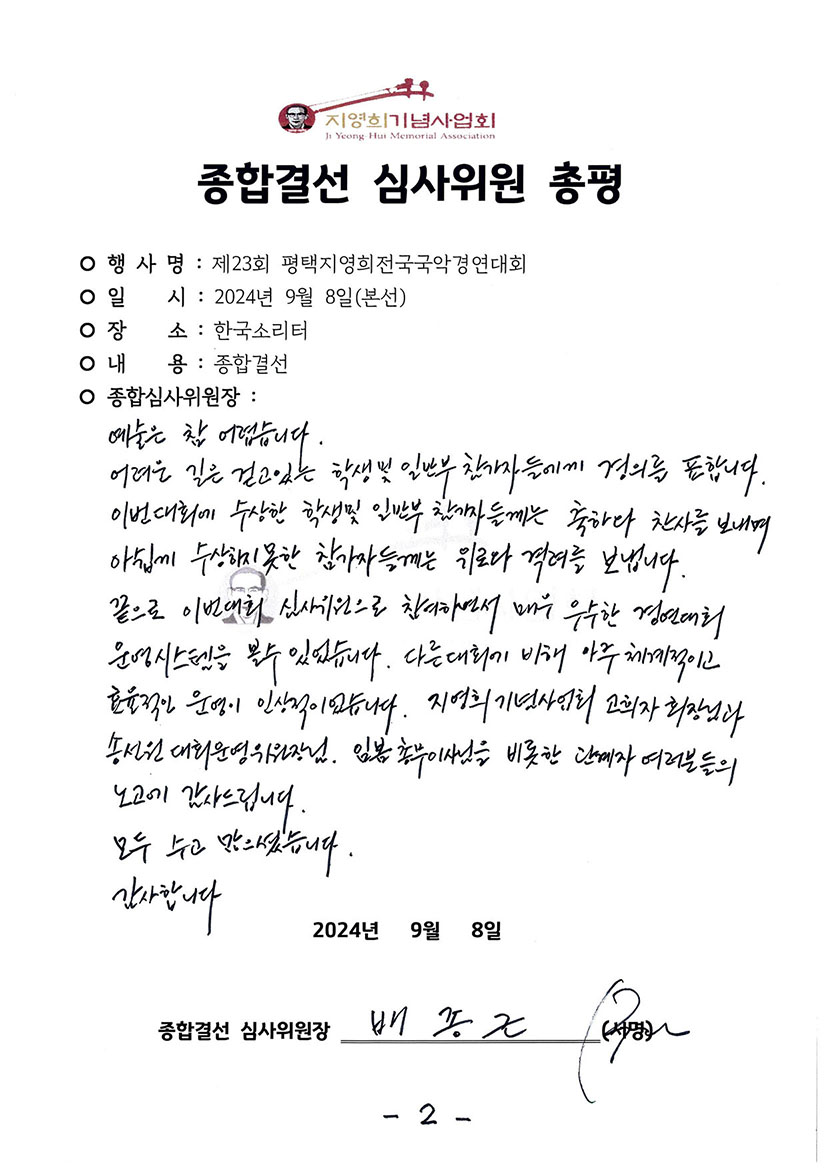 지영희기념사업회
Ji Yeong-Hui Memorial Association
종합결선 심사위원 총평
행 사 명 : 제23회 평택지영희전국국악경연대회
일 시 : 2024년 9월 8일(본선)
장 소 : 한국소리터
내 용 : 종합결선
종합심사위원장 :
예술은 참 어렵습니다.
어려운 길은 걷고있는 학생및 일반부 참가자들에게 경의를 표합니다.
이번대회에 수상한 학생및 일반부 참가자들께는 축하와 찬사를 보내며
아쉽게 수상하지못한 참가자들께는 위로와 격려를 보냅니다.
끝으로 이번대회 심사위원으로 참여하면서 매우 우수한 경연대회
운영시스템을 볼수 있었습니다. 다른대회에 비해 아주 체계적이고
효율적인 운영이 인상적이었습니다. 지영희기념사업회 고희자 회장님과
송선원 대회운영위원장님. 임봄 총무이사님을 비롯한 관계자 여러분들의
노고에 감사드립니다.
모두 수고 많으셨습니다.
감사합니다
2024년 9월 8일
종합결선 심사위원장 배종근 (서명)
- 2 -